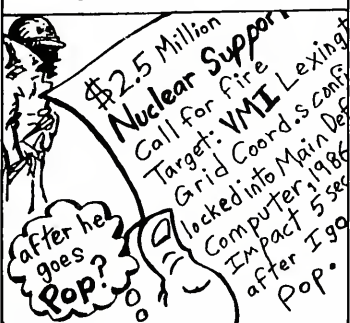 $2.5 Million
Nuclear Support
Call for Fire
Target: VMI Lexingt
Grid Coord.s confi
locked into Main Def
Computer, 1986
Impact 5 sec
after I go
Pop.
after he
goes
Pop?